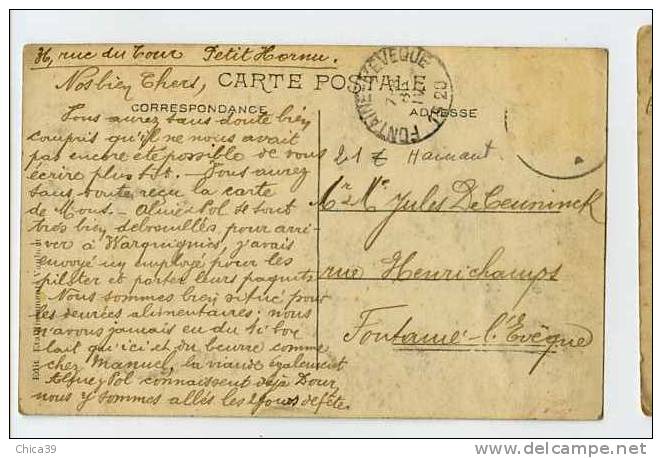 36, rue du Tour Petit Hornu.
Nos bien Chers, CARTE POSTALE
CORRESPONDANCE
ADRESSE
Vous aurez sans doute bien
compris qu'il ne nous avait
pas encore été possible de vous
écrire plus tôt. Vous aurez
sans doute reçu la carte
de Mons. - et Pol se sont
très bien débrouillés, pour arri-
ver à Warquignies, j'avais
envoyé un employé pour les
piloter et porter leurs paquets
Nous sommes bien situé pour
les denrées alimentaires; nous
n'avons jamais eu du si bon
lait qu'ici et du beurre comme
chez Manuel, la viande également
et Pol connaissent déjà Dour,
nous y sommes allés les 2 jours de fête.
FONTAINE-L'EVEQUE
21 Hainaut
Mr Me Jules De Ceuninck
rue Henrichamps
Fontaine-l'Evêque
Edit.
Chica39
delcampe.net